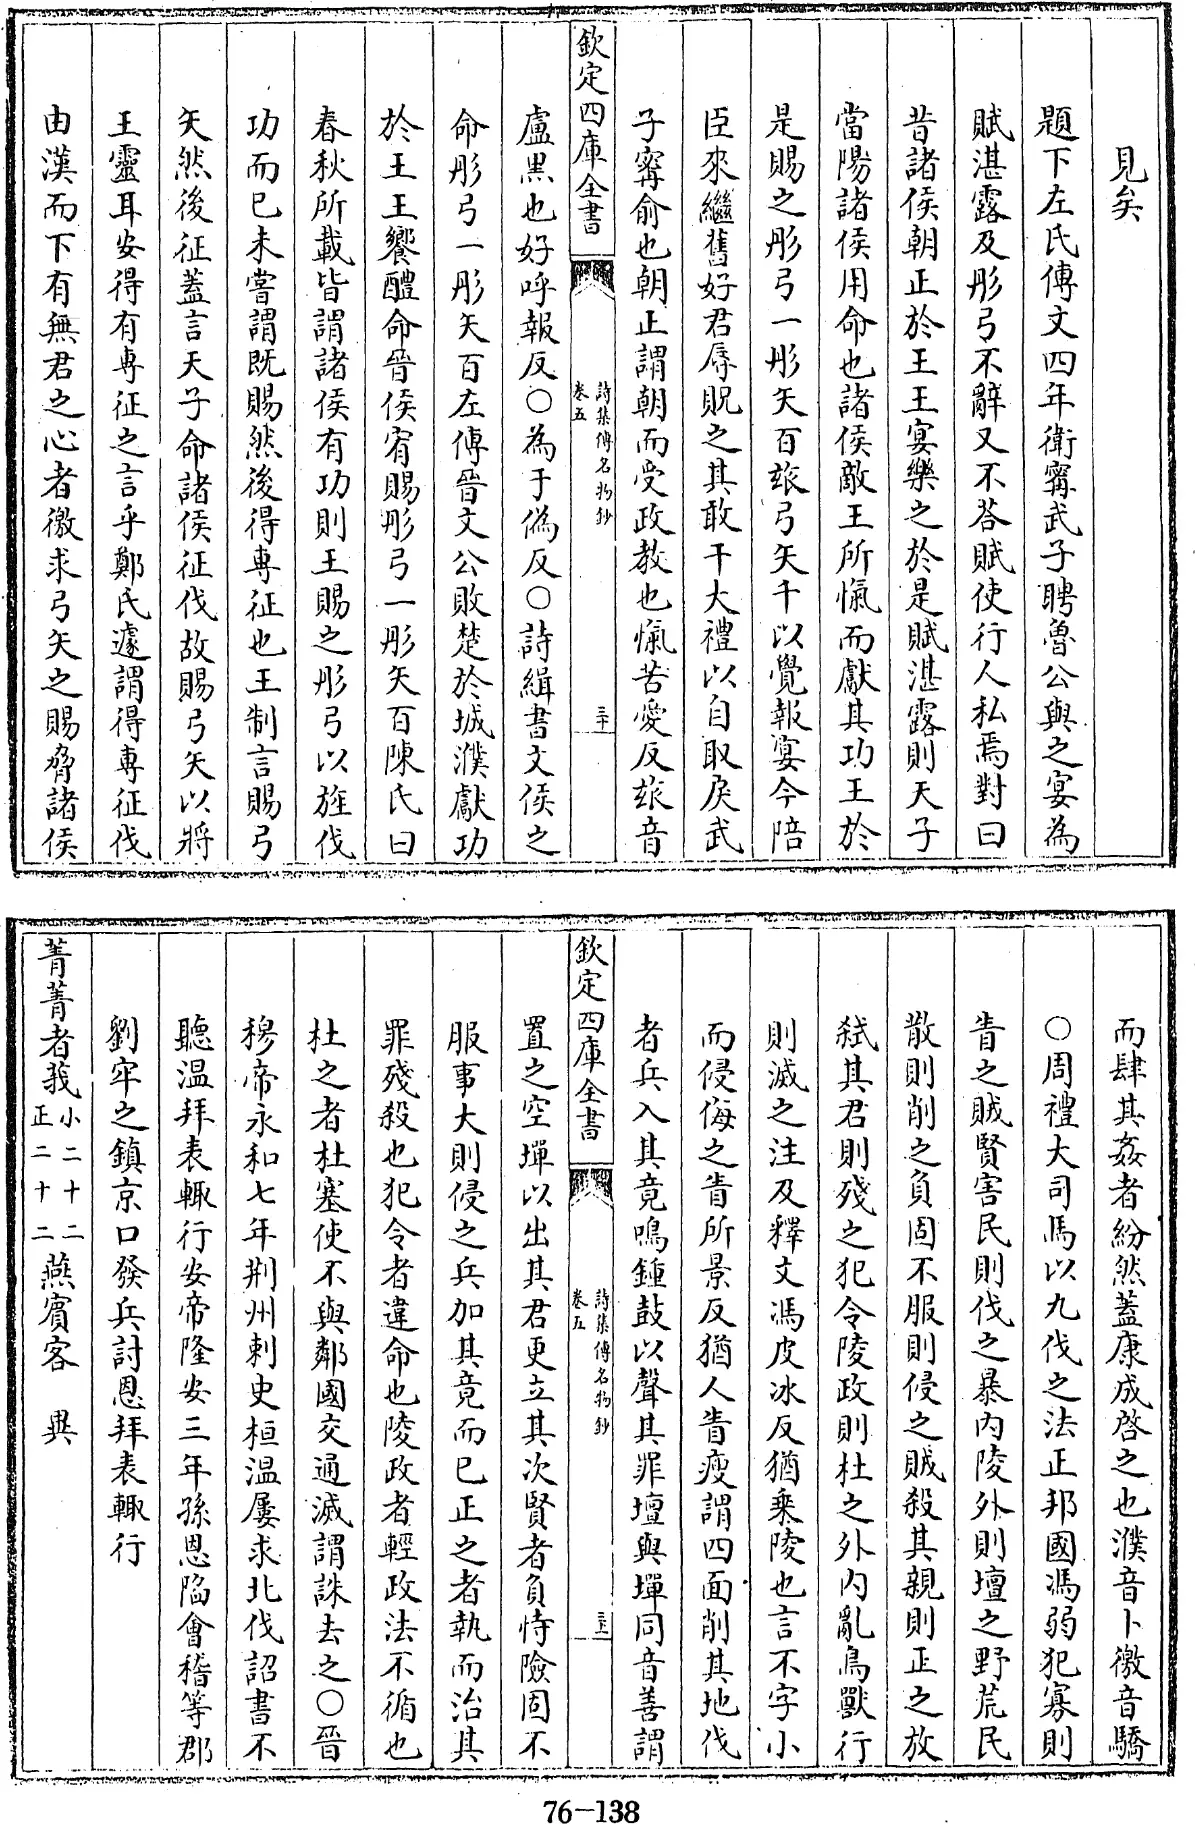 見矣
題下左氏傳文四年衛甯武子聘魯公與之宴為
賦湛露及彤弓不辭又不荅賦使行人私焉對曰
昔諸侯朝正於王王宴樂之於是賦湛露則天子
當陽諸侯用命也諸侯敵王所愾而獻其功王於
是賜之彤弓一彤矢百玈弓矢千以覺報宴今陪
臣來繼舊好君辱貺之其敢干大禮以自取戾武
子甯俞也朝正謂朝而受政教也愾苦愛反玈音
欽定四庫全書
詩集傳名物鈔
卷五
三十
盧黑也好呼報反○為于偽反○詩緝書文侯之
命彤弓一彤矢百左傳晉文公敗楚於城濮獻功
於王王饗醴命晉侯宥賜彤弓一彤矢百陳氏曰
春秋所載皆謂諸侯有功則王賜之彤弓以旌伐
功而已未嘗謂既賜然後得專征也王制言賜弓
矢然後征蓋言天子命諸侯征伐故賜弓矢以將
王靈耳安得有專征之言乎鄭氏遽謂得專征伐
由漢而下有無君之心者徼求弓矢之賜脅諸侯
而肆其姦者紛然蓋康成啓之也濮音卜徼音驕
○周禮大司馬以九伐之法正邦國馮弱犯寡則
眚之賊賢害民則伐之暴內陵外則壇之野荒民
散則削之負固不服則侵之賊殺其親則正之放
弒其君則殘之犯令陵政則杜之外內亂鳥獸行
則滅之注及釋文馮皮冰反猶乗陵也言不字小
而侵侮之眚所景反猶人眚瘦謂四面削其地伐
者兵入其竟鳴鍾鼓以聲其罪壇與墠同音善謂
欽定四庫全書
詩集傳名物鈔
卷五
三十一
置之空墠以出其君更立其次賢者負恃險固不
服事大則侵之兵加其竟而已正之者執而治其
罪殘殺也犯令者違命也陵政者輕政法不循也
杜之者杜塞使不與鄰國交通滅謂誅去之○晉
穆帝永和七年荆州刺史桓溫屢求北伐詔書不
聽溫拜表輒行安帝隆安三年孫恩陷會稽等郡
劉牢之鎮京口發兵討恩拜表輒行
菁菁者莪小二十二正二十二燕賓客　興
76-138